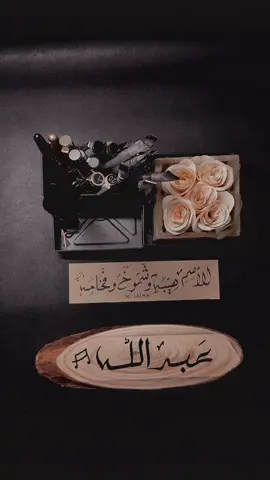 للأسم هيبة وشموخ وفخامه
عَبدالله